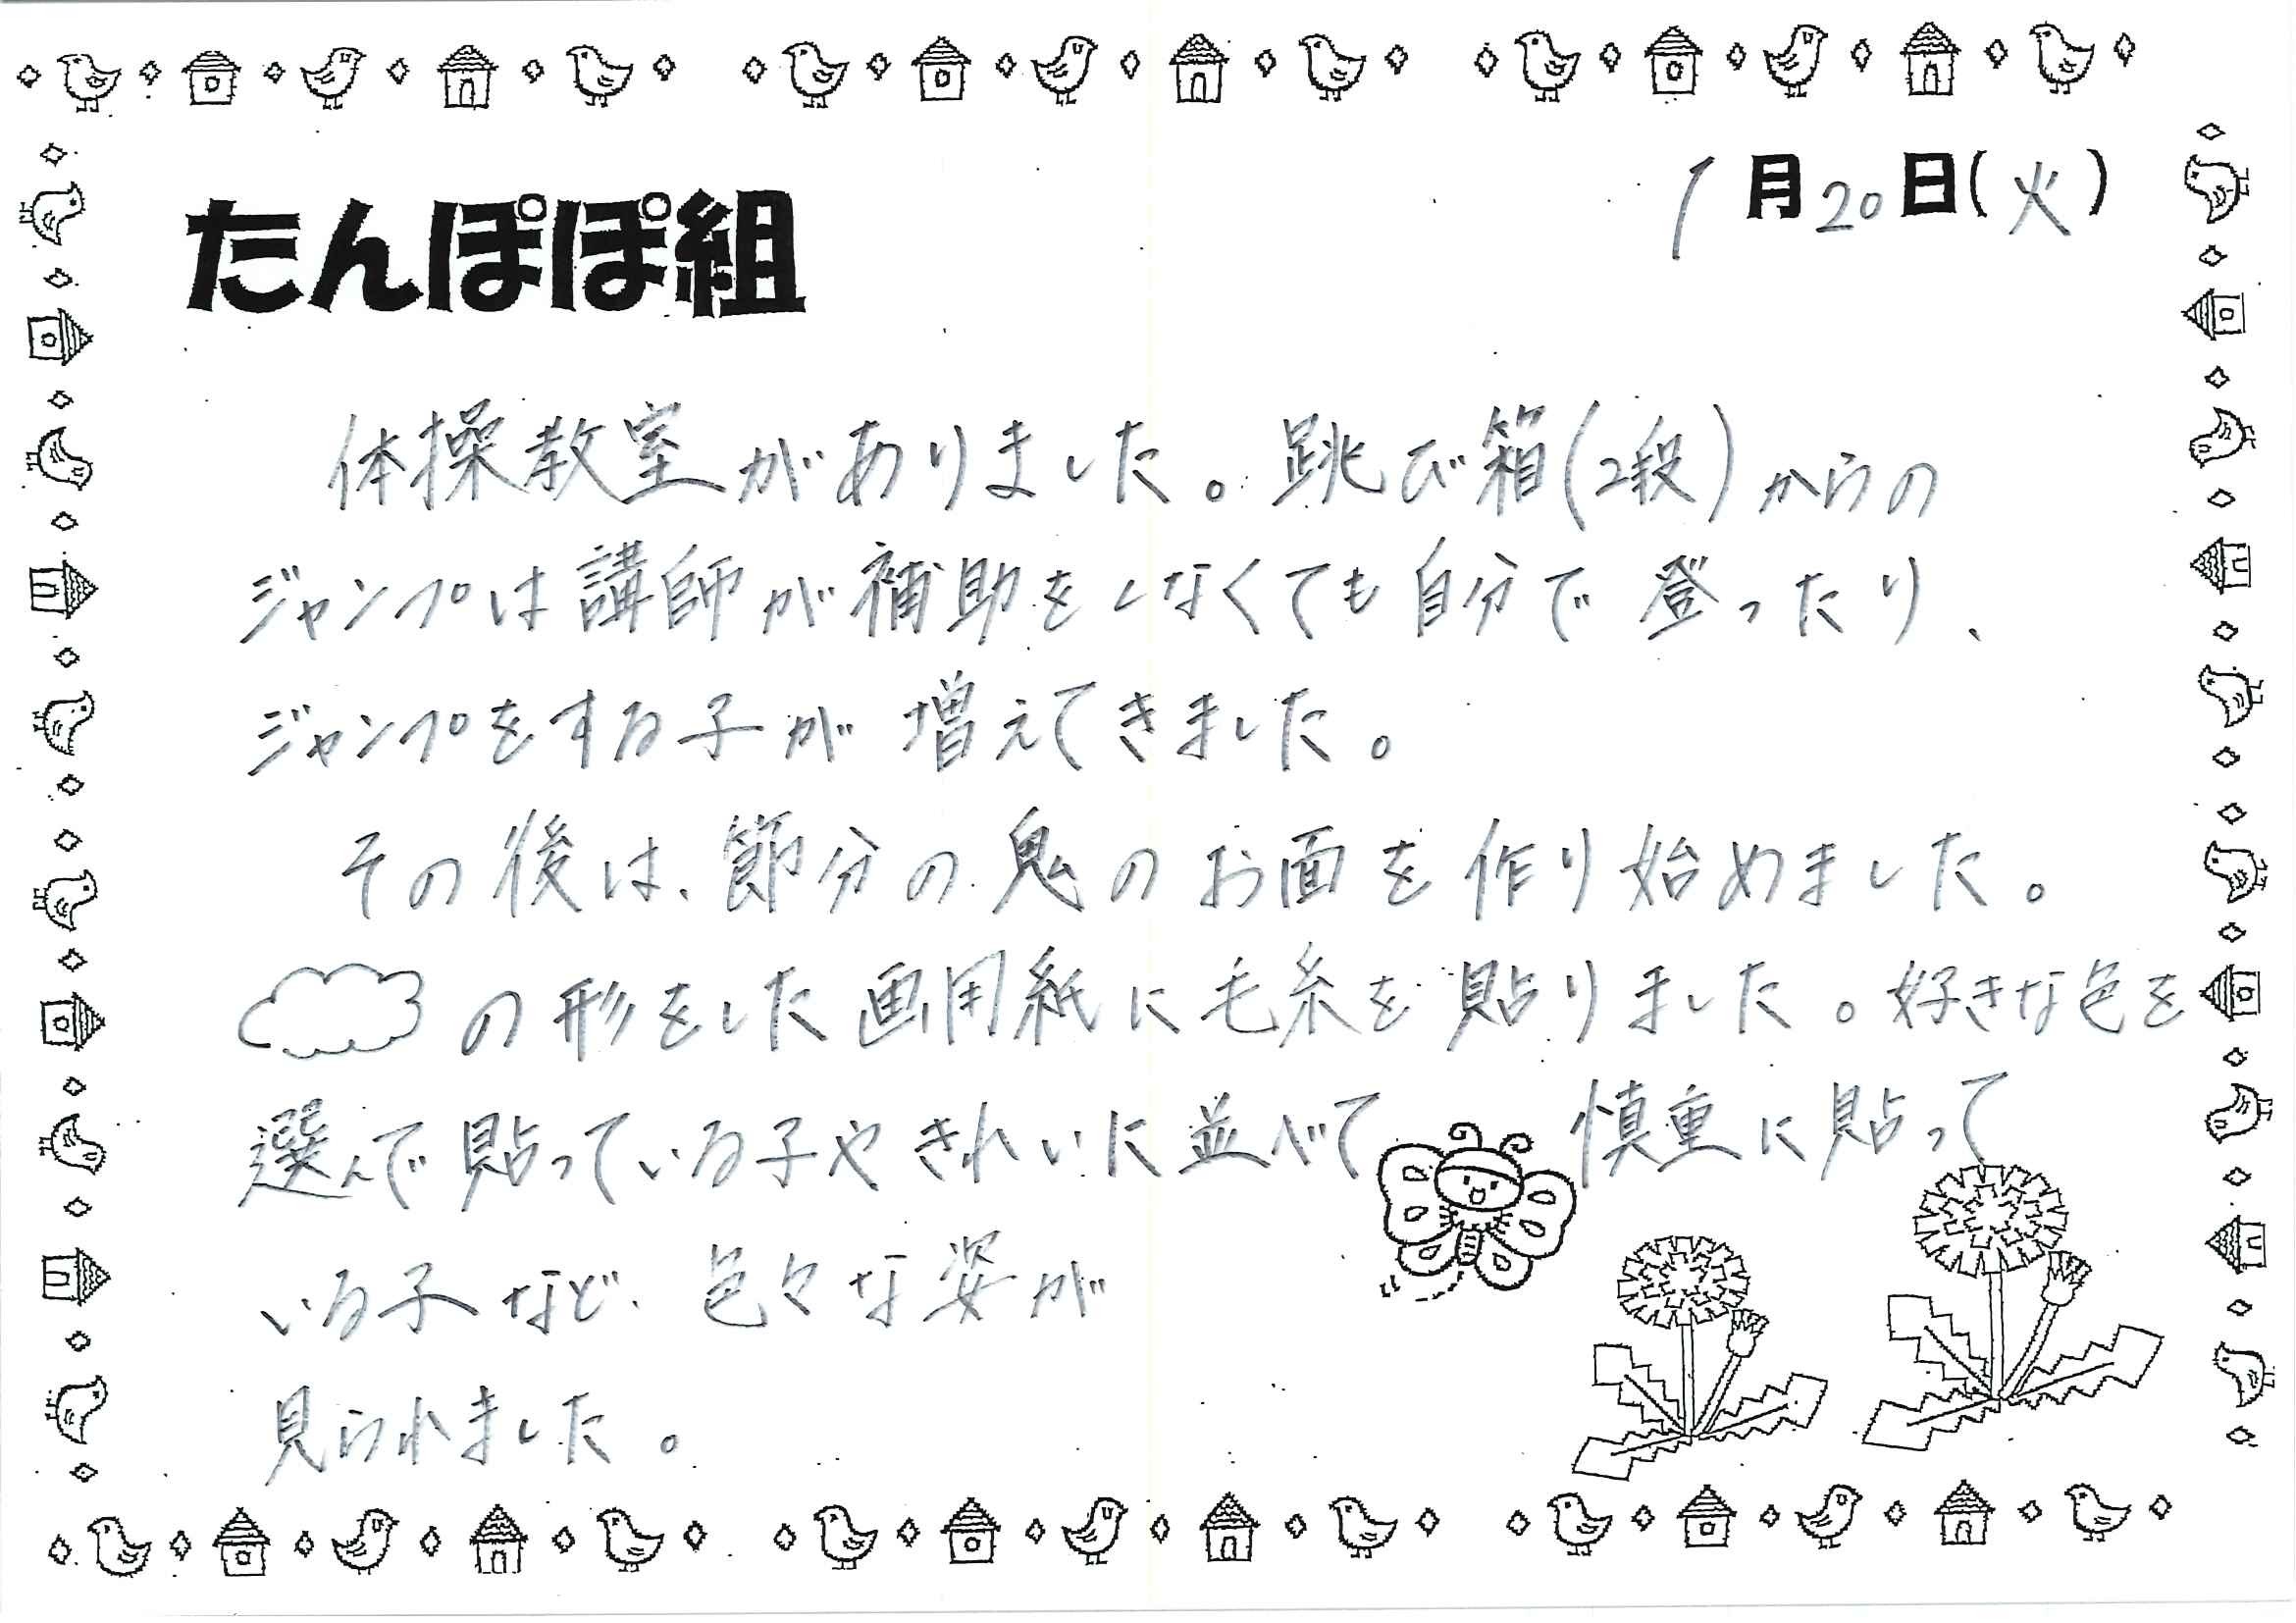 1月20日(火)
たんぽぽ組
体操教室がありました。跳び箱(2段)からの
ジャンプは講師が補助をしなくても自分で登ったり、
ジャンプをする子が増えてきました。
その後は、節分の鬼のお面を作り始めました。
の形をした画用紙に毛糸を貼りました。好きな色を
選んで貼っている子やきれいに並べて慎重に貼って
いる子など、色々な姿が
見られました。